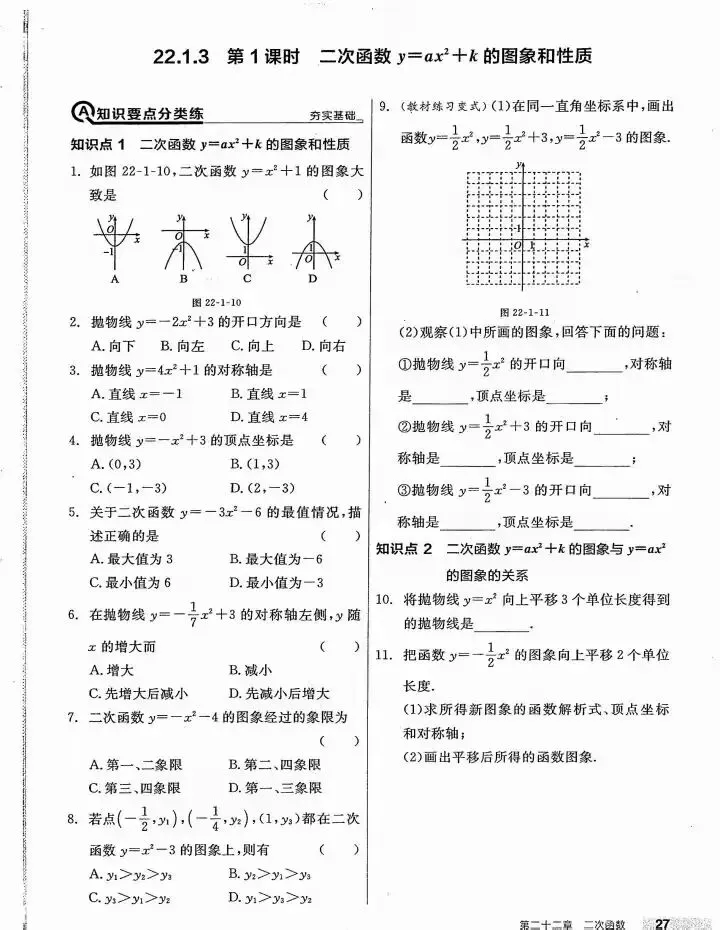 22.1.3 第1课时 二次函数 y=ax²+k 的图象和性质
A 知识要点分类练 夯实基础
知识点 1 二次函数 y=ax²+k 的图象和性质
1. 如图 22-1-10,二次函数 y=x²+1 的图象大
致是 ( )
y O x -1 y O x -1 y 1 O x y 1 O x
A B C D
图 22-1-10
2. 抛物线 y=-2x²+3 的开口方向是 ( )
A. 向下 B. 向左 C. 向上 D. 向右
3. 抛物线 y=4x²+1 的对称轴是 ( )
A. 直线 x=-1 B. 直线 x=1
C. 直线 x=0 D. 直线 x=4
4. 抛物线 y=-x²+3 的顶点坐标是 ( )
A. (0,3) B. (1,3)
C. (-1,-3) D. (2,-3)
5. 关于二次函数 y=-3x²-6 的最值情况,描
述正确的是 ( )
A. 最大值为 3 B. 最大值为-6
C. 最小值为 6 D. 最小值为-3
6. 在抛物线 y=-1/7x²+3 的对称轴左侧,y 随
x 的增大而 ( )
A. 增大 B. 减小
C. 先增大后减小 D. 先减小后增大
7. 二次函数 y=-x²-4 的图象经过的象限为
( )
A. 第一、二象限 B. 第二、四象限
C. 第三、四象限 D. 第一、三象限
8. 若点(-1/2,y₁),(-1/4,y₂),(1,y₃)都在二次
函数 y=x²-3 的图象上,则有 ( )
A. y₁>y₂>y₃ B. y₂>y₁>y₃
C. y₃>y₁>y₂ D. y₁>y₃>y₂
9. (教材练习变式)(1)在同一直角坐标系中,画出
函数y=1/2x²,y=1/2x²+3,y=1/2x²-3 的图象.
y
1
O 1 x
图 22-1-11
(2)观察(1)中所画的图象,回答下面的问题:
①抛物线 y=1/2x² 的开口向______,对称轴
是______,顶点坐标是______;
②抛物线 y=1/2x²+3 的开口向______,对
称轴是______,顶点坐标是______;
③抛物线 y=1/2x²-3 的开口向______,对
称轴是______,顶点坐标是______.
知识点 2 二次函数 y=ax²+k 的图象与 y=ax²
的图象的关系
10. 将抛物线 y=x² 向上平移 3 个单位长度得到
的抛物线是______.
11. 把函数 y=-1/2x² 的图象向上平移 2 个单位
长度.
(1)求所得新图象的函数解析式、顶点坐标
和对称轴;
(2)画出平移后所得的函数图象.
第二十二章 二次函数 27